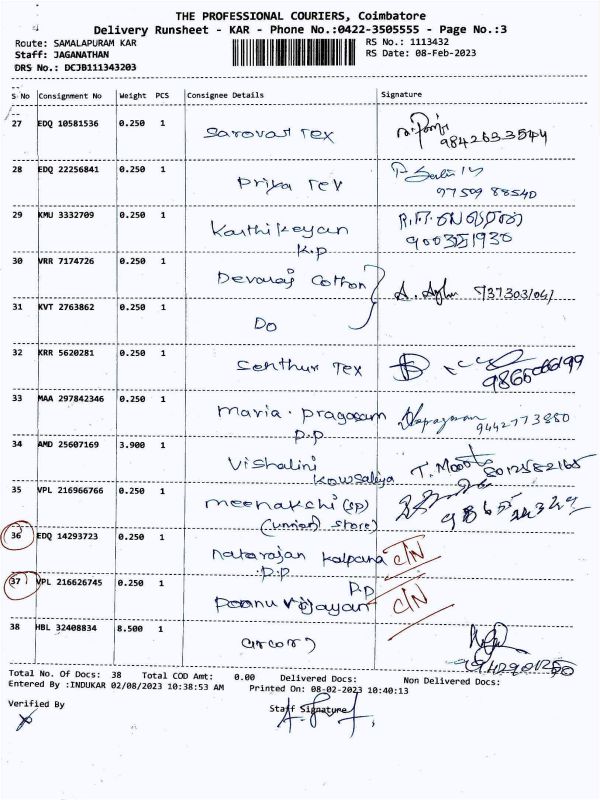 THE PROFESSIONAL COURIERS, Coimbatore
Delivery Runsheet - KAR - Phone No.:0422-3505555 - Page No.:3
Route: SAMALAPURAM KAR RS No.: 1113432
Staff: JAGANATHAN RS Date: 08-Feb-2023
DRS No.: DCJB111343203
S No Consignment No Weight PCS Consignee Details Signature
27 EDQ 10581536 0.250 1 Sarovar Tex
9842633544
28 EDQ 22256841 0.250 1 Priya Tex
97509 88540
29 KMU 3332709 0.250 1 Karthikeyan
K.P
30 VRR 7174726 0.250 1 Devaraj Cotton
31 KVT 2763862 0.250 1 Do
32 KRR 5620281 0.250 1 Senthur Tex
33 MAA 297842346 0.250 1 Maria. Pragasam
P.P 9442773880
34 AMD 25607169 3.900 1 Vishalini
Kowsalya 8012582165
35 VPL 216966766 0.250 1 Meenakchi (SP)
(union store)
36 EDQ 14293723 0.250 1 Natarajan Kalpana C/N
P.P
37 VPL 216626745 0.250 1 P.P
Poonu Vijayan C/N
38 HBL 32408834 8.500 1
Total No. Of Docs: 38 Total COD Amt: 0.00 Delivered Docs: Non Delivered Docs:
Entered By :INDUKAR 02/08/2023 10:38:53 AM Printed On: 08-02-2023 10:40:13
Verified By Staff Signature